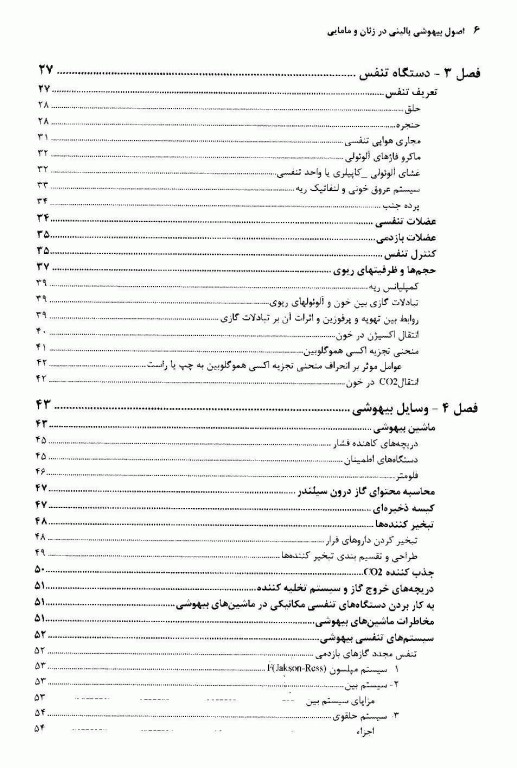 ۶ اصول بیهوشی بالینی در زنان و مامایی
فصل ۳ - دستگاه تنفس ۲۷
تعریف تنفس ۲۷
حلق ۲۸
حنجره ۲۸
مجاری هوایی تنفسی ۳۱
ماکرو فاژهای آلوئولی ۳۲
غشای آلوئولی _کاپیلری یا واحد تنفسی ۳۲
سیستم عروق خونی و لنفاتیک ریه ۳۳
پرده جنب ۳۴
عضلات تنفسی ۳۴
عضلات بازدمی ۳۵
کنترل تنفس ۳۵
حجم‌ها و ظرفیتهای ریوی ۳۷
کمپلیانس ریه ۳۹
تبادلات گازی بین خون و آلوئولهای ریوی ۳۹
روابط بین تهویه و پرفوزین و اثرات آن بر تبادلات گازی ۳۹
انتقال اکسیژن در خون ۴۰
منحنی تجزیه اکسی هموگلوبین ۴۱
عوامل موثر بر انحراف منحنی تجزیه اکسی هموگلوبین به چپ یا راست ۴۲
انتقال CO2 در خون ۴۲
فصل ۴ - وسایل بیهوشی ۴۳
ماشین بیهوشی ۴۳
دریچه‌های کاهنده فشار ۴۵
دستگاه‌های اطمینان ۴۵
فلومتر ۴۶
محاسبه محتوای گاز درون سیلندر ۴۷
کیسه ذخیره‌ای ۴۷
تبخیر کننده‌ها ۴۸
تبخیر کردن داروهای فرار ۴۸
طراحی و تقسیم بندی تبخیر کننده‌ها ۴۹
جذب کننده CO2 ۵۰
دریچه‌های خروج گاز و سیستم تخلیه کننده ۵۱
به کار بردن دستگاه‌های تنفسی مکانیکی در ماشین‌های بیهوشی ۵۱
مخاطرات ماشین‌های بیهوشی ۵۱
سیستم‌های تنفسی بیهوشی ۵۲
تنفس مجدد گازهای بازدمی ۵۲
۱ سیستم میلسون F(Jakson-Ress) ۵۳
۲- سیستم بین ۵۳
مزایای سیستم بین ۵۳
۳. سیستم حلقوی ۵۴
اجزاء ۵۴